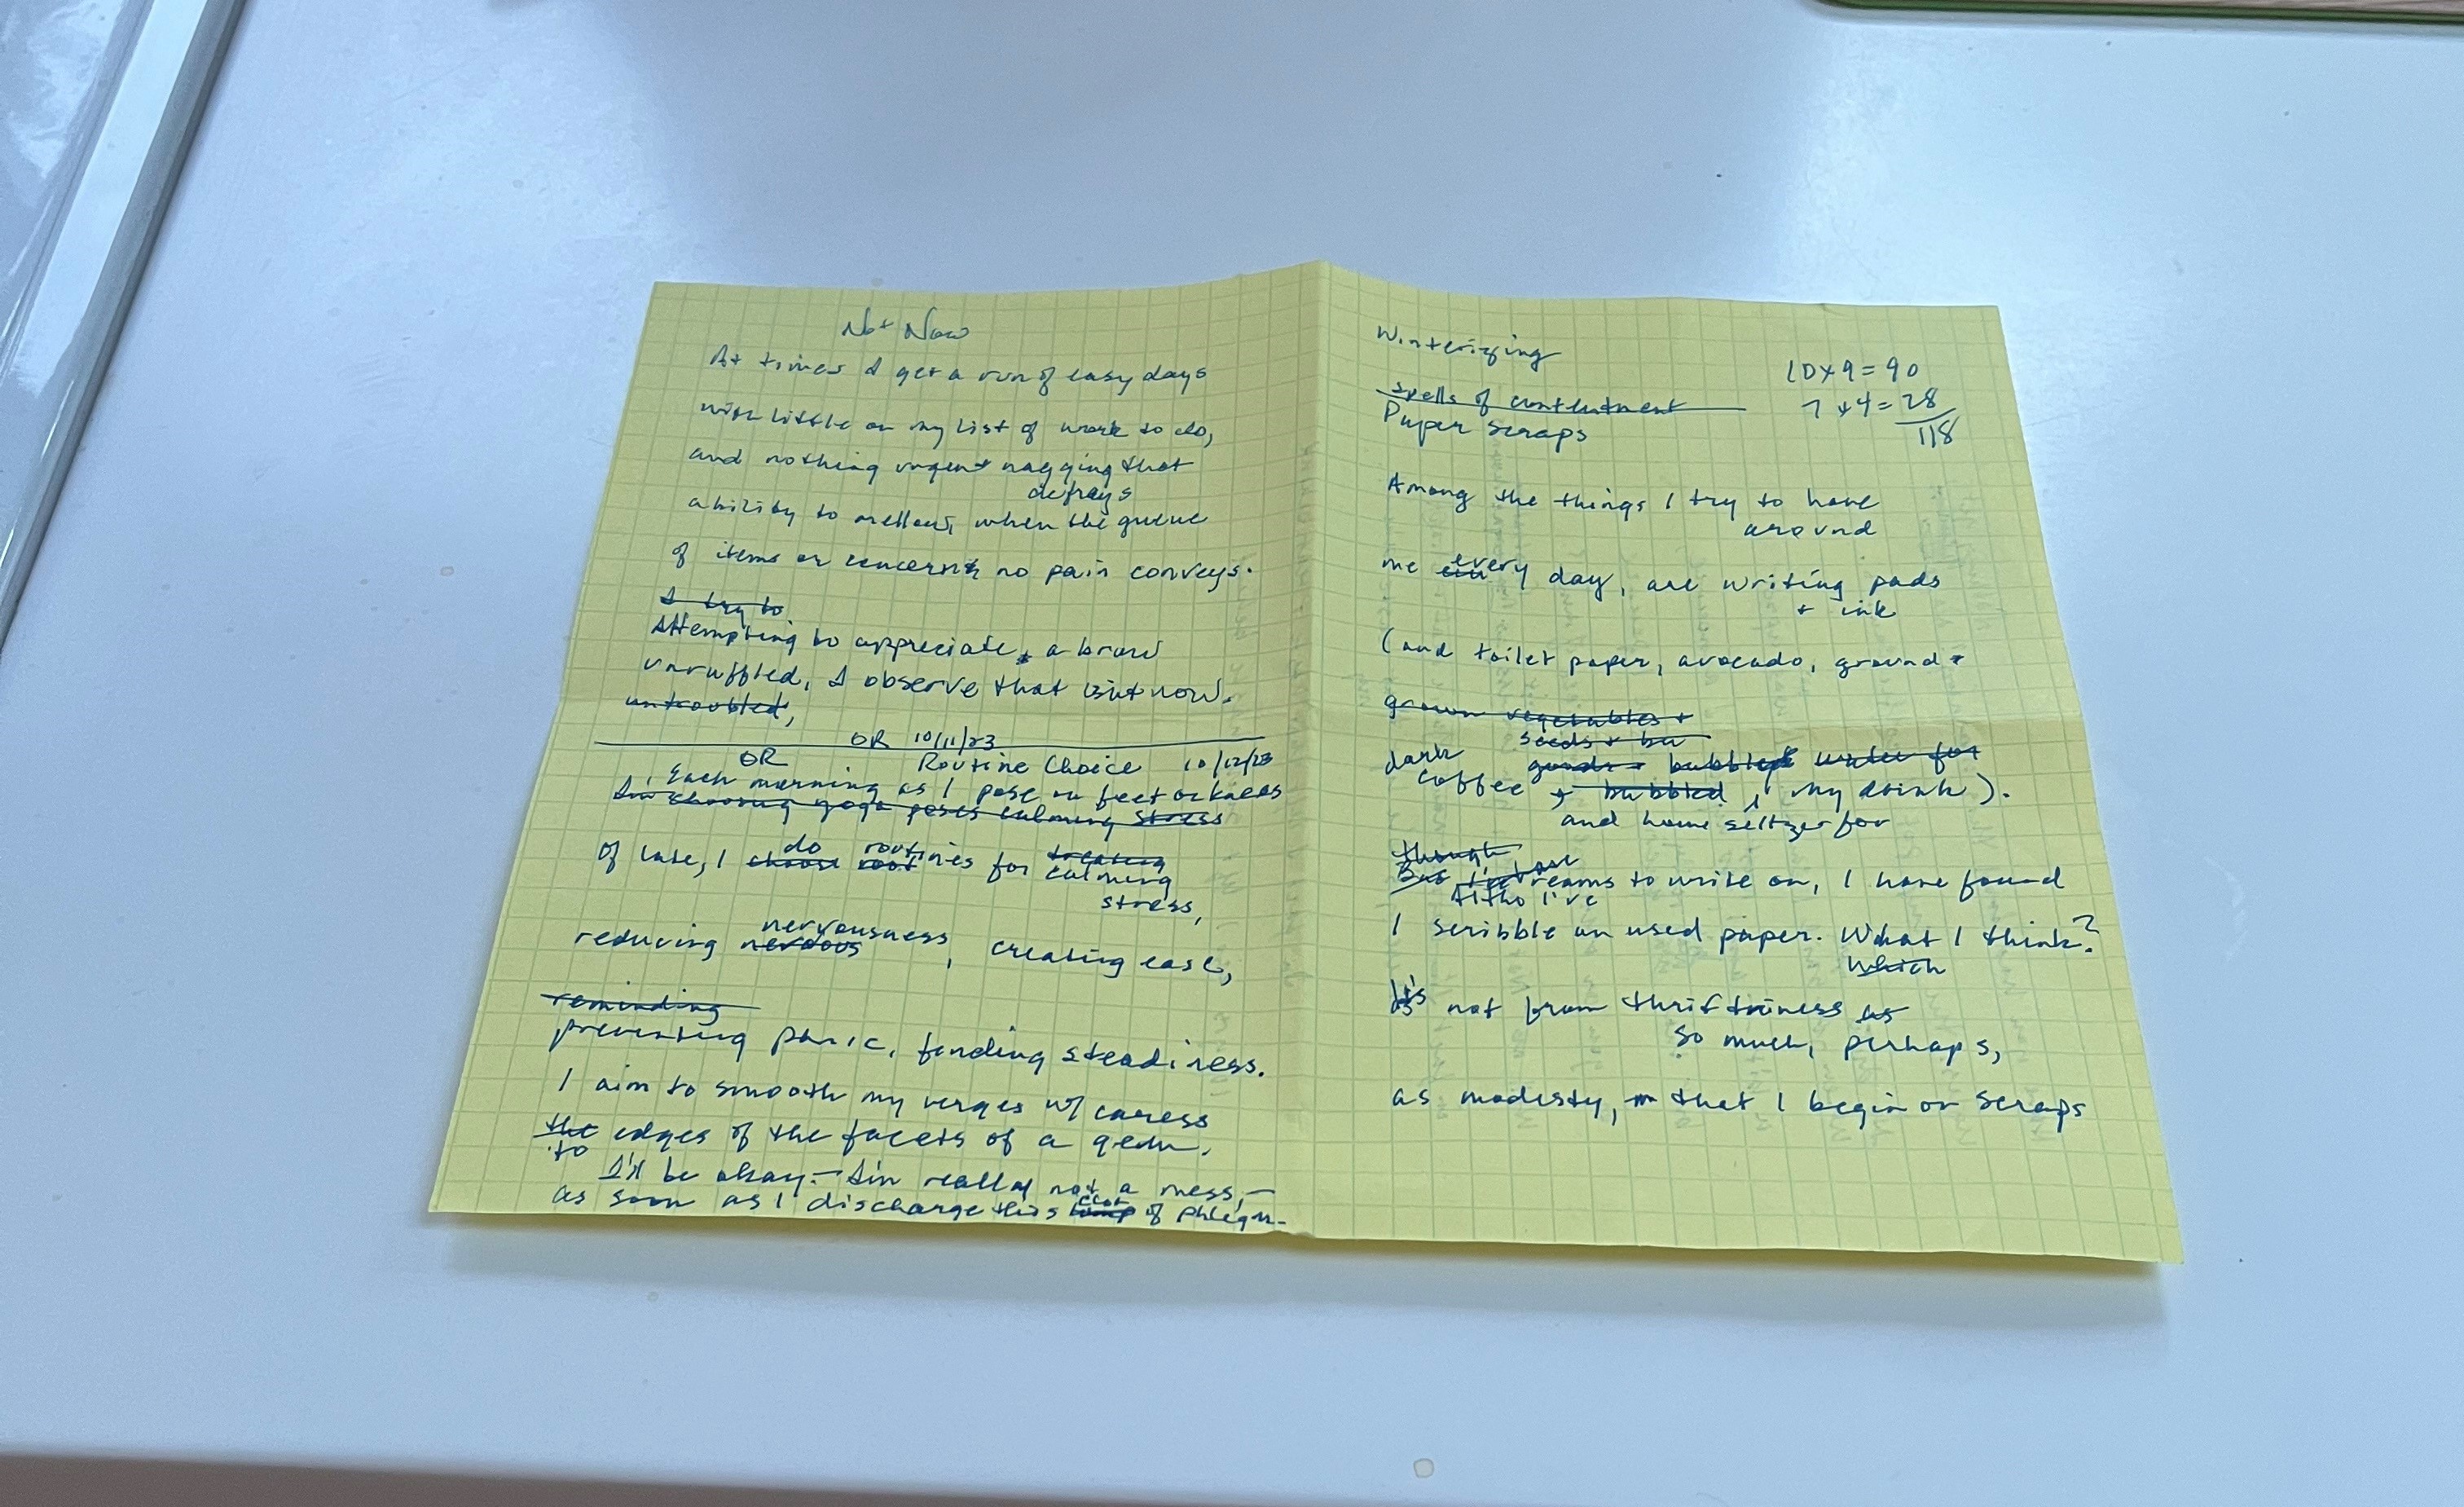 Not Now
At times I get a run of easy days
with little on my list of work to do,
and nothing urgent nagging that
defrays
ability to mellow, when the queue
of items or concerns no pain conveys.
I try to
Attempting to appreciate, a brow
unruffled, I observe that isn't now.
untroubled,
OR 10/11/23
OR Routine Choice 10/12/23
Each morning as I pose on feet or knees
I'm choosing yoga poses calming stress
do routines
Of late, I choose root for treating
calming
stress,
nervousness
reducing nervous, creating ease,
reminding
preventing panic, finding steadiness.
I aim to smooth my verges w/ caress
the edges of the facets of a gem.
to
I'll be okay – I'm really not a mess, –
as soon as I discharge this clot of phlegm.
Winterizing
spells of contentment
Paper scraps
10x9=90
7x4=28
118
Among the things I try to have
around
me every day, are writing pads
+ ink
(and toilet paper, avocado, ground
grown vegetables +
seeds +
dark goods bubbled water for
coffee + bubbled, my drink).
and home seltzer for
though
But I've reams to write on, I have found
Altho I've
I scribble on used paper. What I think?
which
It's not from thriftiness as
so much, perhaps,
as modesty, that I begin on scraps